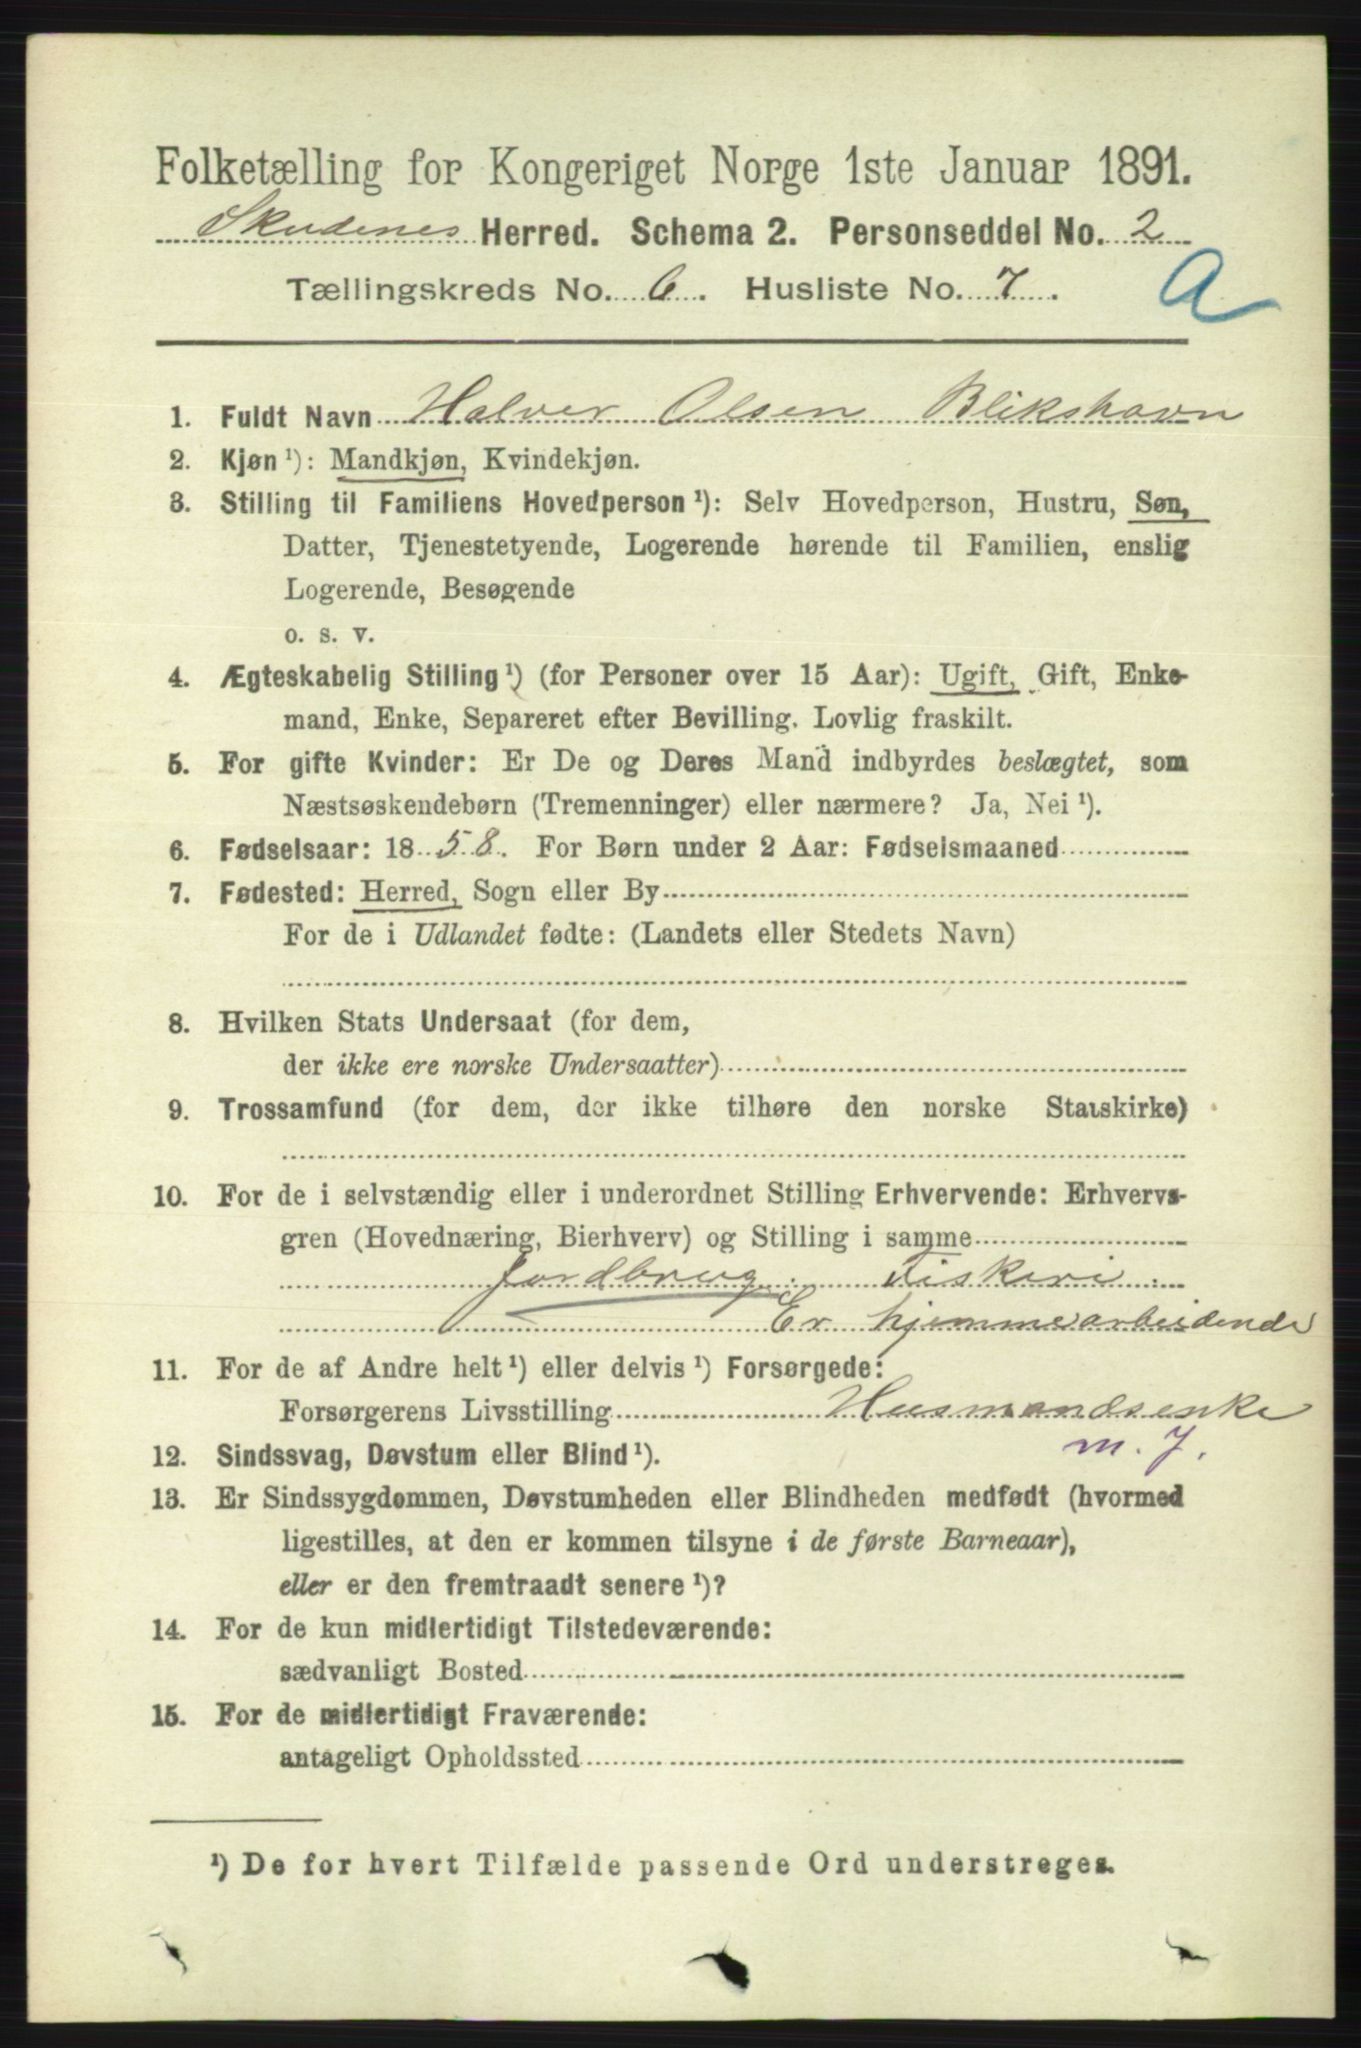 Folketælling for Kongeriget Norge 1ste Januar 1891.
Skudenes Herred. Schema 2. Personseddel No. 2
Tællingskreds No. 6. Husliste No. 7.
a
1. Fuldt Navn Halver Olsen Blikshavn
2. Kjøn ¹): Mandkjøn, Kvindekjøn.
3. Stilling til Familiens Hovedperson ¹): Selv Hovedperson, Hustru, Søn,
Datter, Tjenestetyende, Logerende hørende til Familien, enslig
Logerende, Besøgende
o. s. v.
4. Ægteskabelig Stilling ¹) (for Personer over 15 Aar): Ugift, Gift, Enke-
mand, Enke, Separeret efter Bevilling. Lovlig fraskilt.
5. For gifte Kvinder: Er De og Deres Mand indbyrdes beslægtet, som
Næstsøskendebørn (Tremenninger) eller nærmere? Ja, Nei ¹).
6. Fødselsaar: 1858. For Børn under 2 Aar: Fødselsmaaned
7. Fødested: Herred, Sogn eller By
For de i Udlandet fødte: (Landets eller Stedets Navn)
8. Hvilken Stats Undersaat (for dem,
der ikke ere norske Undersaatter)
9. Trossamfund (for dem, der ikke tilhøre den norske Statskirke)
10. For de i selvstændig eller i underordnet Stilling Erhvervende: Erhvervs-
gren (Hovednæring, Bierhverv) og Stilling i samme
Jordbrug. Fiskeri.
Er hjemmearbeidende
11. For de af Andre helt ¹) eller delvis ¹) Forsørgede:
Forsørgerens Livsstilling Husmandsenke
m. J.
12. Sindssvag, Døvstum eller Blind ¹).
13. Er Sindssygdommen, Døvstumheden eller Blindheden medfødt (hvormed
ligestilles, at den er kommen tilsyne i de første Barneaar),
eller er den fremtraadt senere ¹)?
14. For de kun midlertidigt Tilstedeværende:
sædvanligt Bosted
15. For de midlertidigt Fraværende:
antageligt Opholdssted
¹) De for hvert Tilfælde passende Ord understreges.